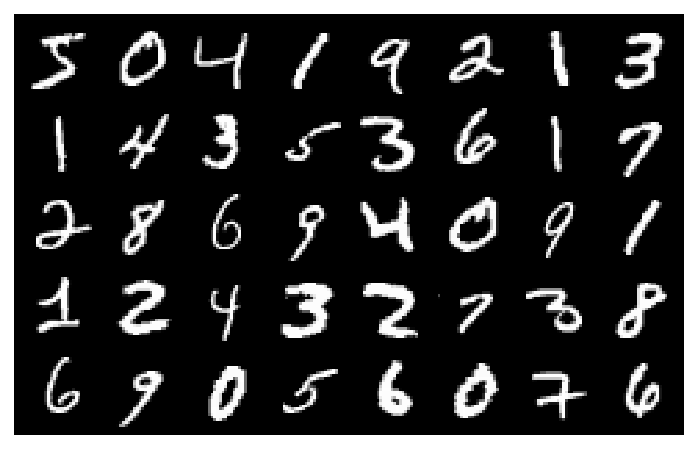 5 0 4 1 9 2 1 3
1 4 3 5 3 6 1 7
2 8 6 9 4 0 9 1
1 2 4 3 2 7 3 8
6 9 0 5 6 0 7 6